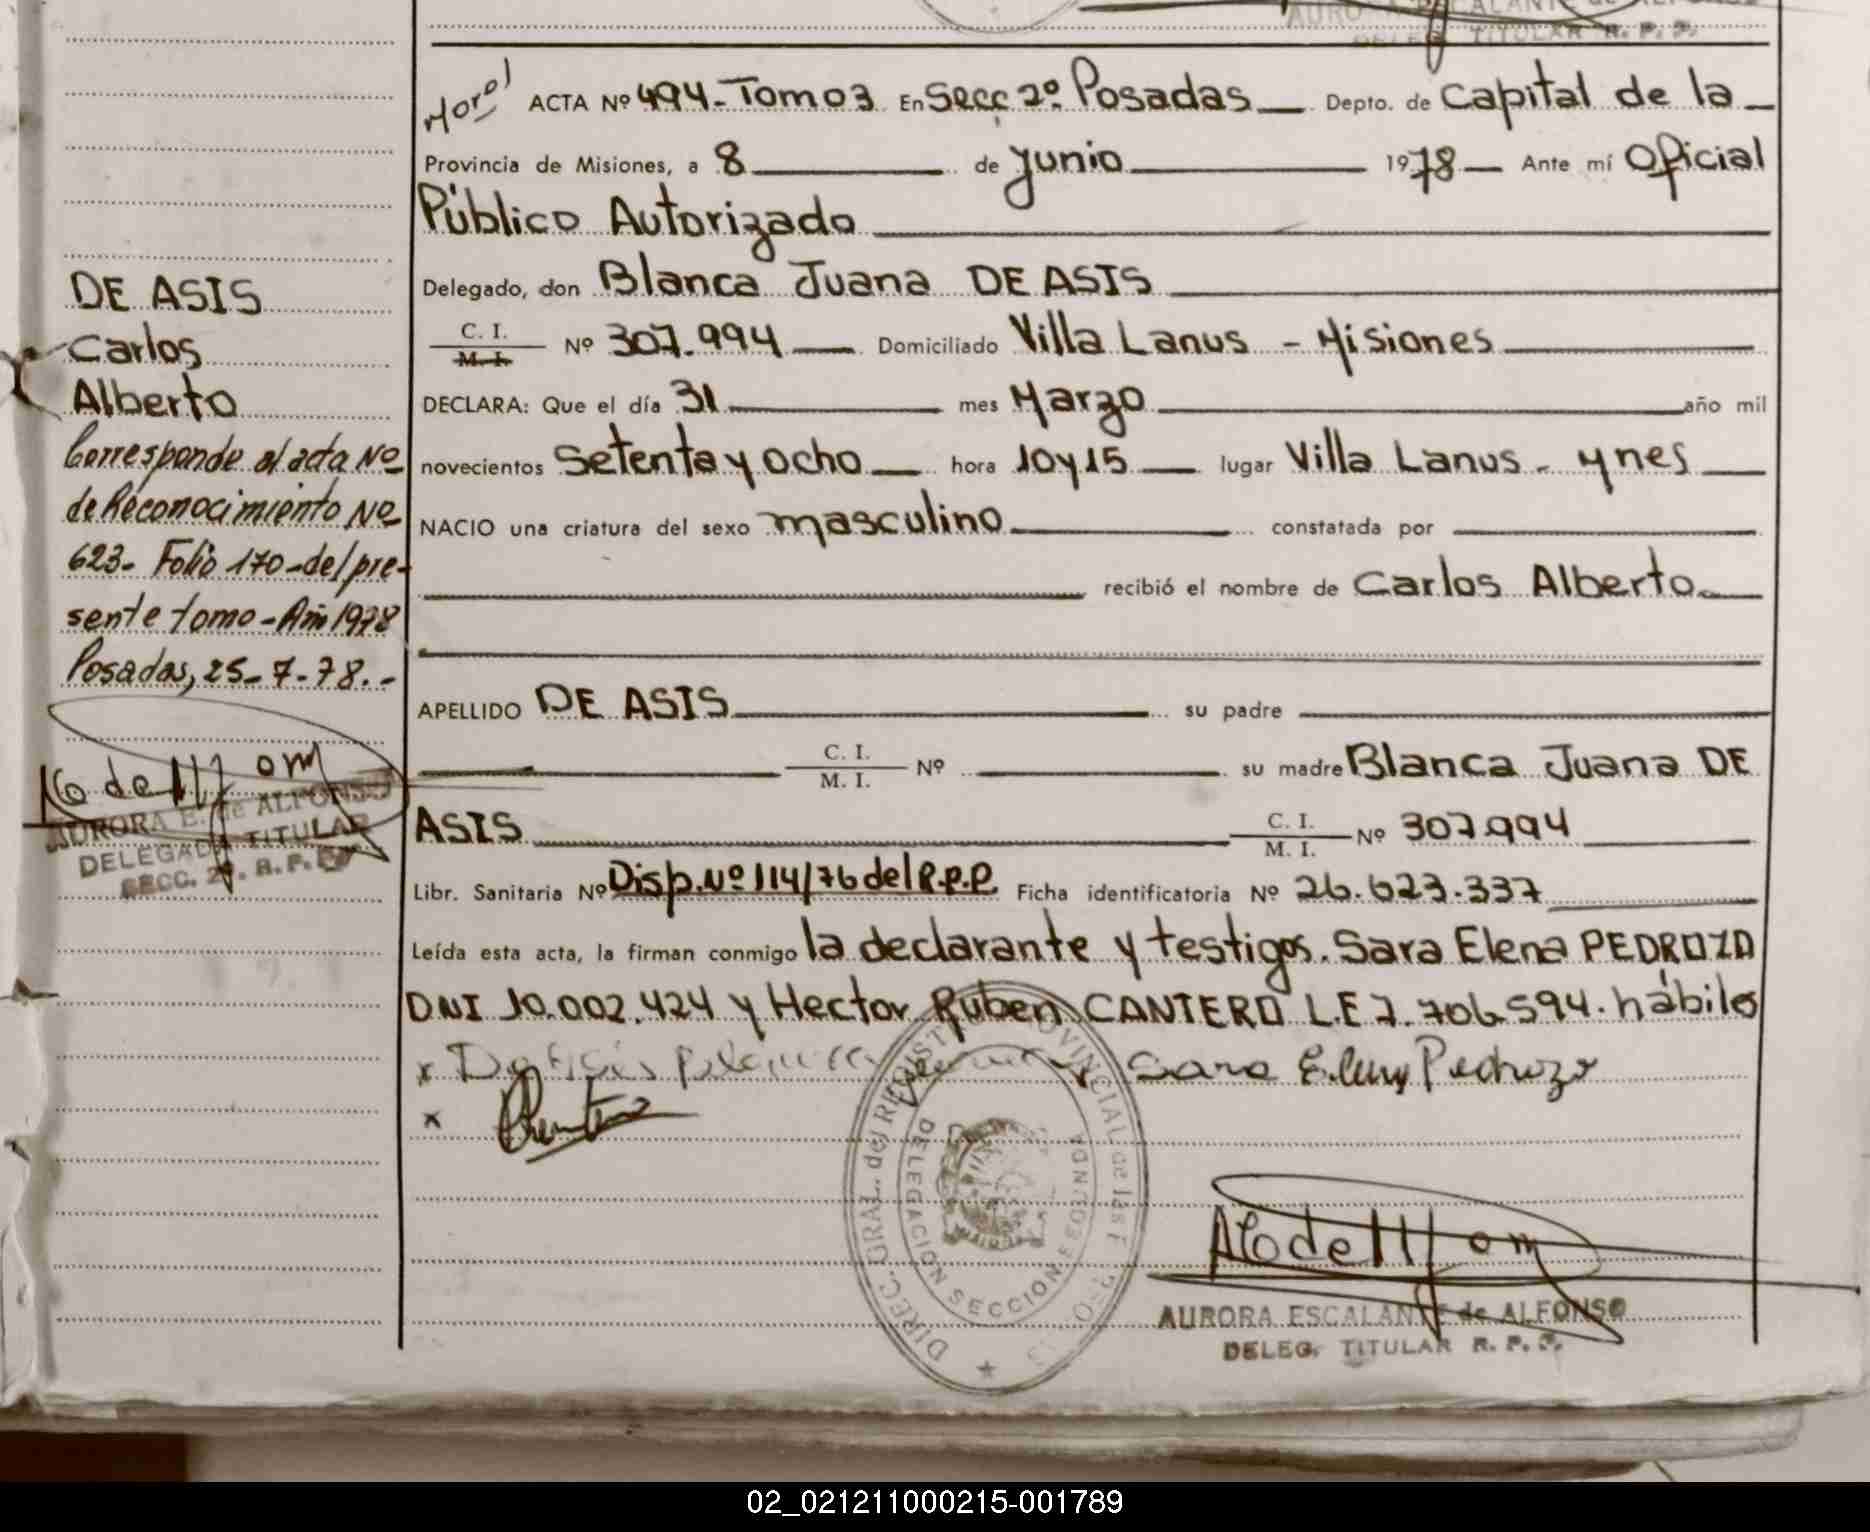 AURORA ESCALANTE de ALFONSO
DELEG. TITULAR R. P. P.
ACTA Nº 494-Tomo 3 En Secc 2º Posadas Depto. de Capital de la
Provincia de Misiones, a 8 de Junio 1978 Ante mí Oficial
Público Autorizado
Delegado, don Blanca Juana DE ASIS
C. I.
M. I.
Nº 307.994 Domiciliado Villa Lanus - Misiones
DECLARA: Que el día 31 mes Marzo año mil
novecientos setenta y ocho hora 10y15 lugar Villa Lanus - Ynes
NACIO una criatura del sexo masculino constatada por
recibió el nombre de Carlos Alberto
APELLIDO DE ASIS su padre
C. I.
M. I.
Nº su madre Blanca Juana DE
ASIS C. I.
M. I.
Nº 307.994
Libr. Sanitaria Nº Disp. Nº 114/76 del R.P.P. Ficha identificatoria Nº 26.623.337
Leída esta acta, la firman conmigo la declarante y testigos. Sara Elena PEDROZO
DNI 10.002.424 y Hector Ruben CANTERO L.E 7.706.594. hábiles
x
x
AURORA ESCALANTE de ALFONSO
DELEG. TITULAR R. P. P.
DE ASIS
Carlos
Alberto
Corresponde al acta Nº
de Reconocimiento Nº
623- Folio 170-del pre-
sente tomo-Año 1978
Posadas, 25-7-78.-
AURORA E. de ALFONSO
DELEGADA TITULAR
SECC. 2ª. R. P. P.
DELEGACION SECCION SEGUNDA
02_021211000215-001789